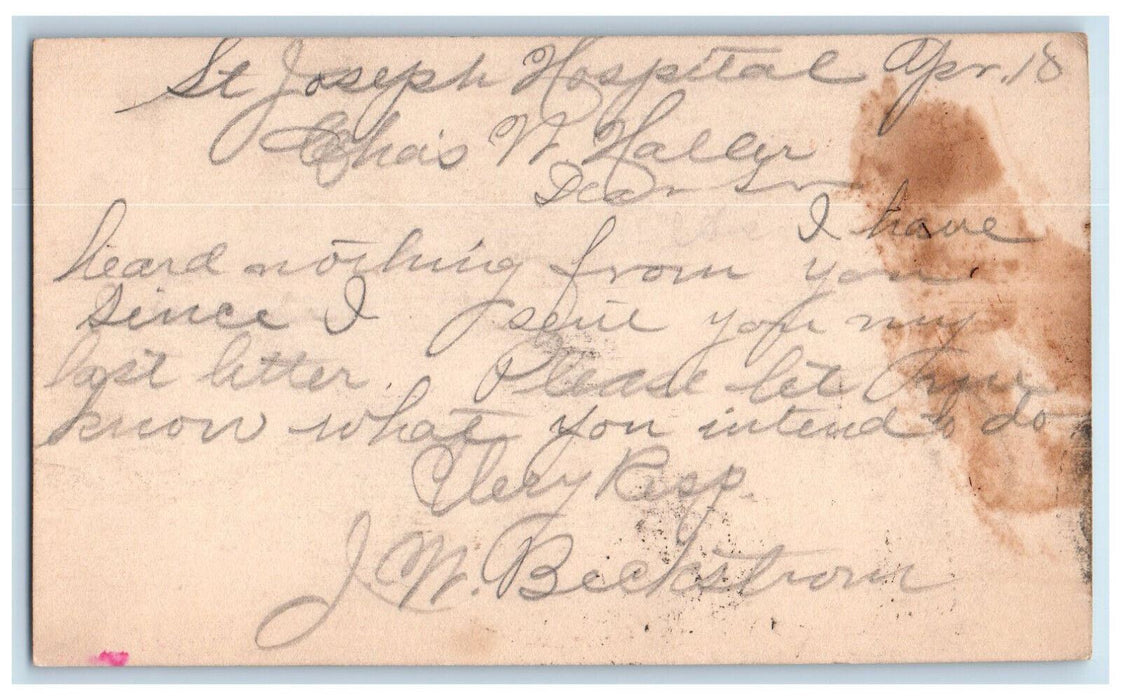 St Joseph Hospital Apr. 18
Chas W Haller
Dear Sir
I have
heard nothing from you
since I sent you my
last letter. Please let me
know what you intend to do
Very Resp.
J. W. Beckstrom